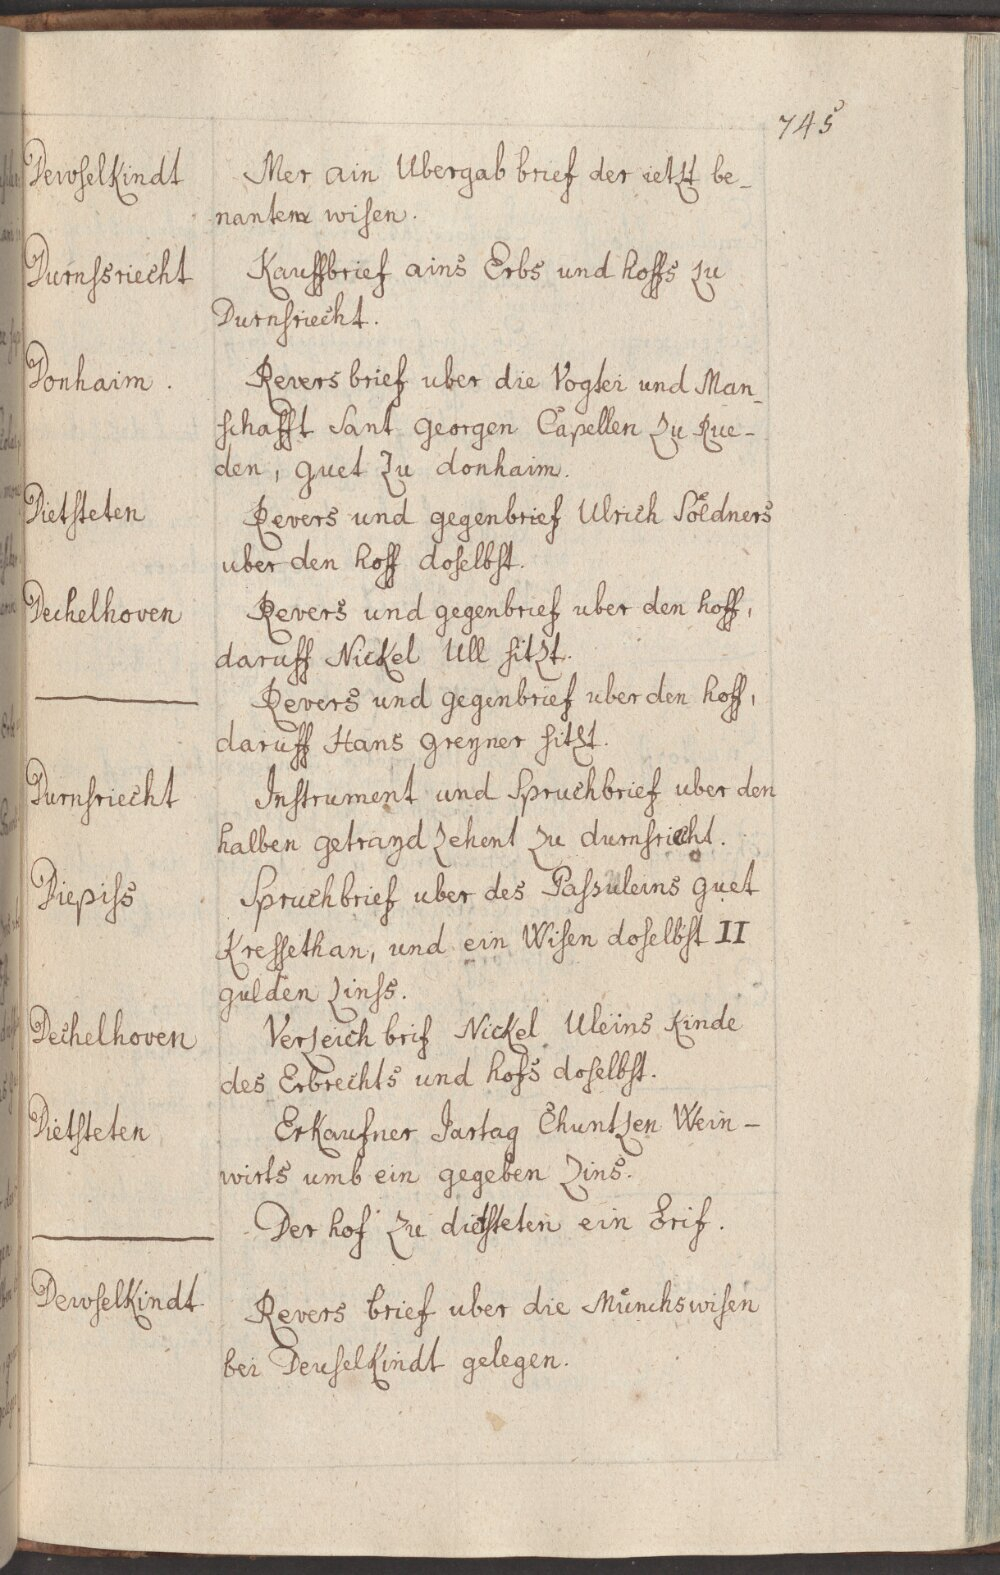 745
Dewselkindt Mer ain Ubergab brief der ietzt be-
nantenn wisen.
Durnssriecht Kauffbrief ains Erbs und hoffs zu
Durnsriecht.
Donhaim. Revers brief uber die Vogtei und Man-
schafft Sant Georgen Capellen zu Rue-
den, guet zu donhaim.
Dietsteten Revers und gegenbrief Ulrich Söldners
uber den hoff doselbst.
Dechelhoven Revers und gegenbrief uber den hoff,
daruff Nickel Ull sitzt.
Revers und gegenbrief uber den hoff,
daruff Hans Greyner sitzt.
Durnsriecht Instrument und Spruchbrief uber den
halben getrayd zehent zu durnsriecht.
Diepiss Spruchbrief uber des Passuleins guet
Kressethan, und ein Wisen doselbst II
gulden zinss.
Dechelhoven Verzeich brif Nickel Uleins Kinde
des Erbrechts und hofs doselbst.
Dietsteten Erkaufner Jartag Chuntzen Wein-
wirts umb ein gegeben zins.
Der hof zu dietsteten ein brif.
Dewselkindt Revers brief uber die Münchswisen
bei Deuselkindt gelegen.